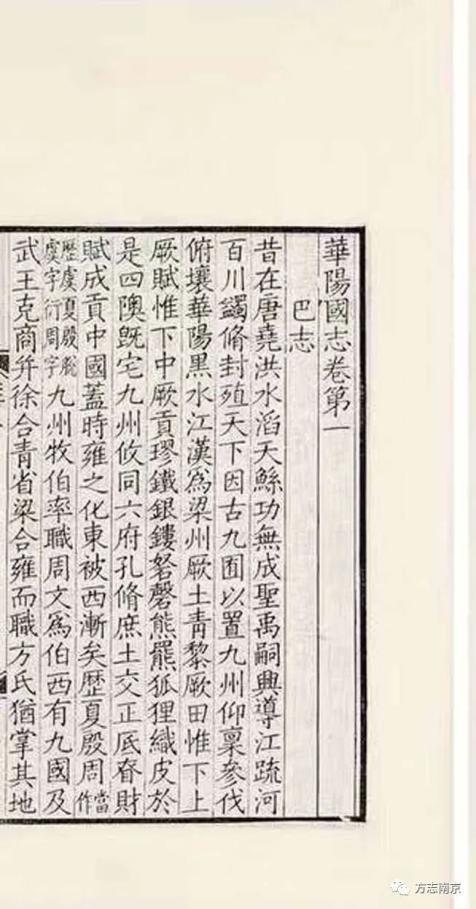 華陽國志卷第一
巴志
昔在唐堯洪水滔天鯀功無成聖禹嗣興導江疏河
百川蠲脩封殖天下因古九囿以置九州仰稟參伐
俯壤華陽黑水江漢爲梁州厥土青黎厥田惟下上
厥賦惟下中厥貢璆鐵銀鏤砮磬熊羆狐狸織皮於
是四隩旣宅九州攸同六府孔脩庶土交正底眘財
賦成貢中國蓋時雍之化東被西漸矣歷夏殷周當作
歷虞夏殷脫虞字衍周字九州牧伯率職周文爲伯西有九國及
武王克商并徐合青省梁合雍而職方氏猶掌其地
方志南京